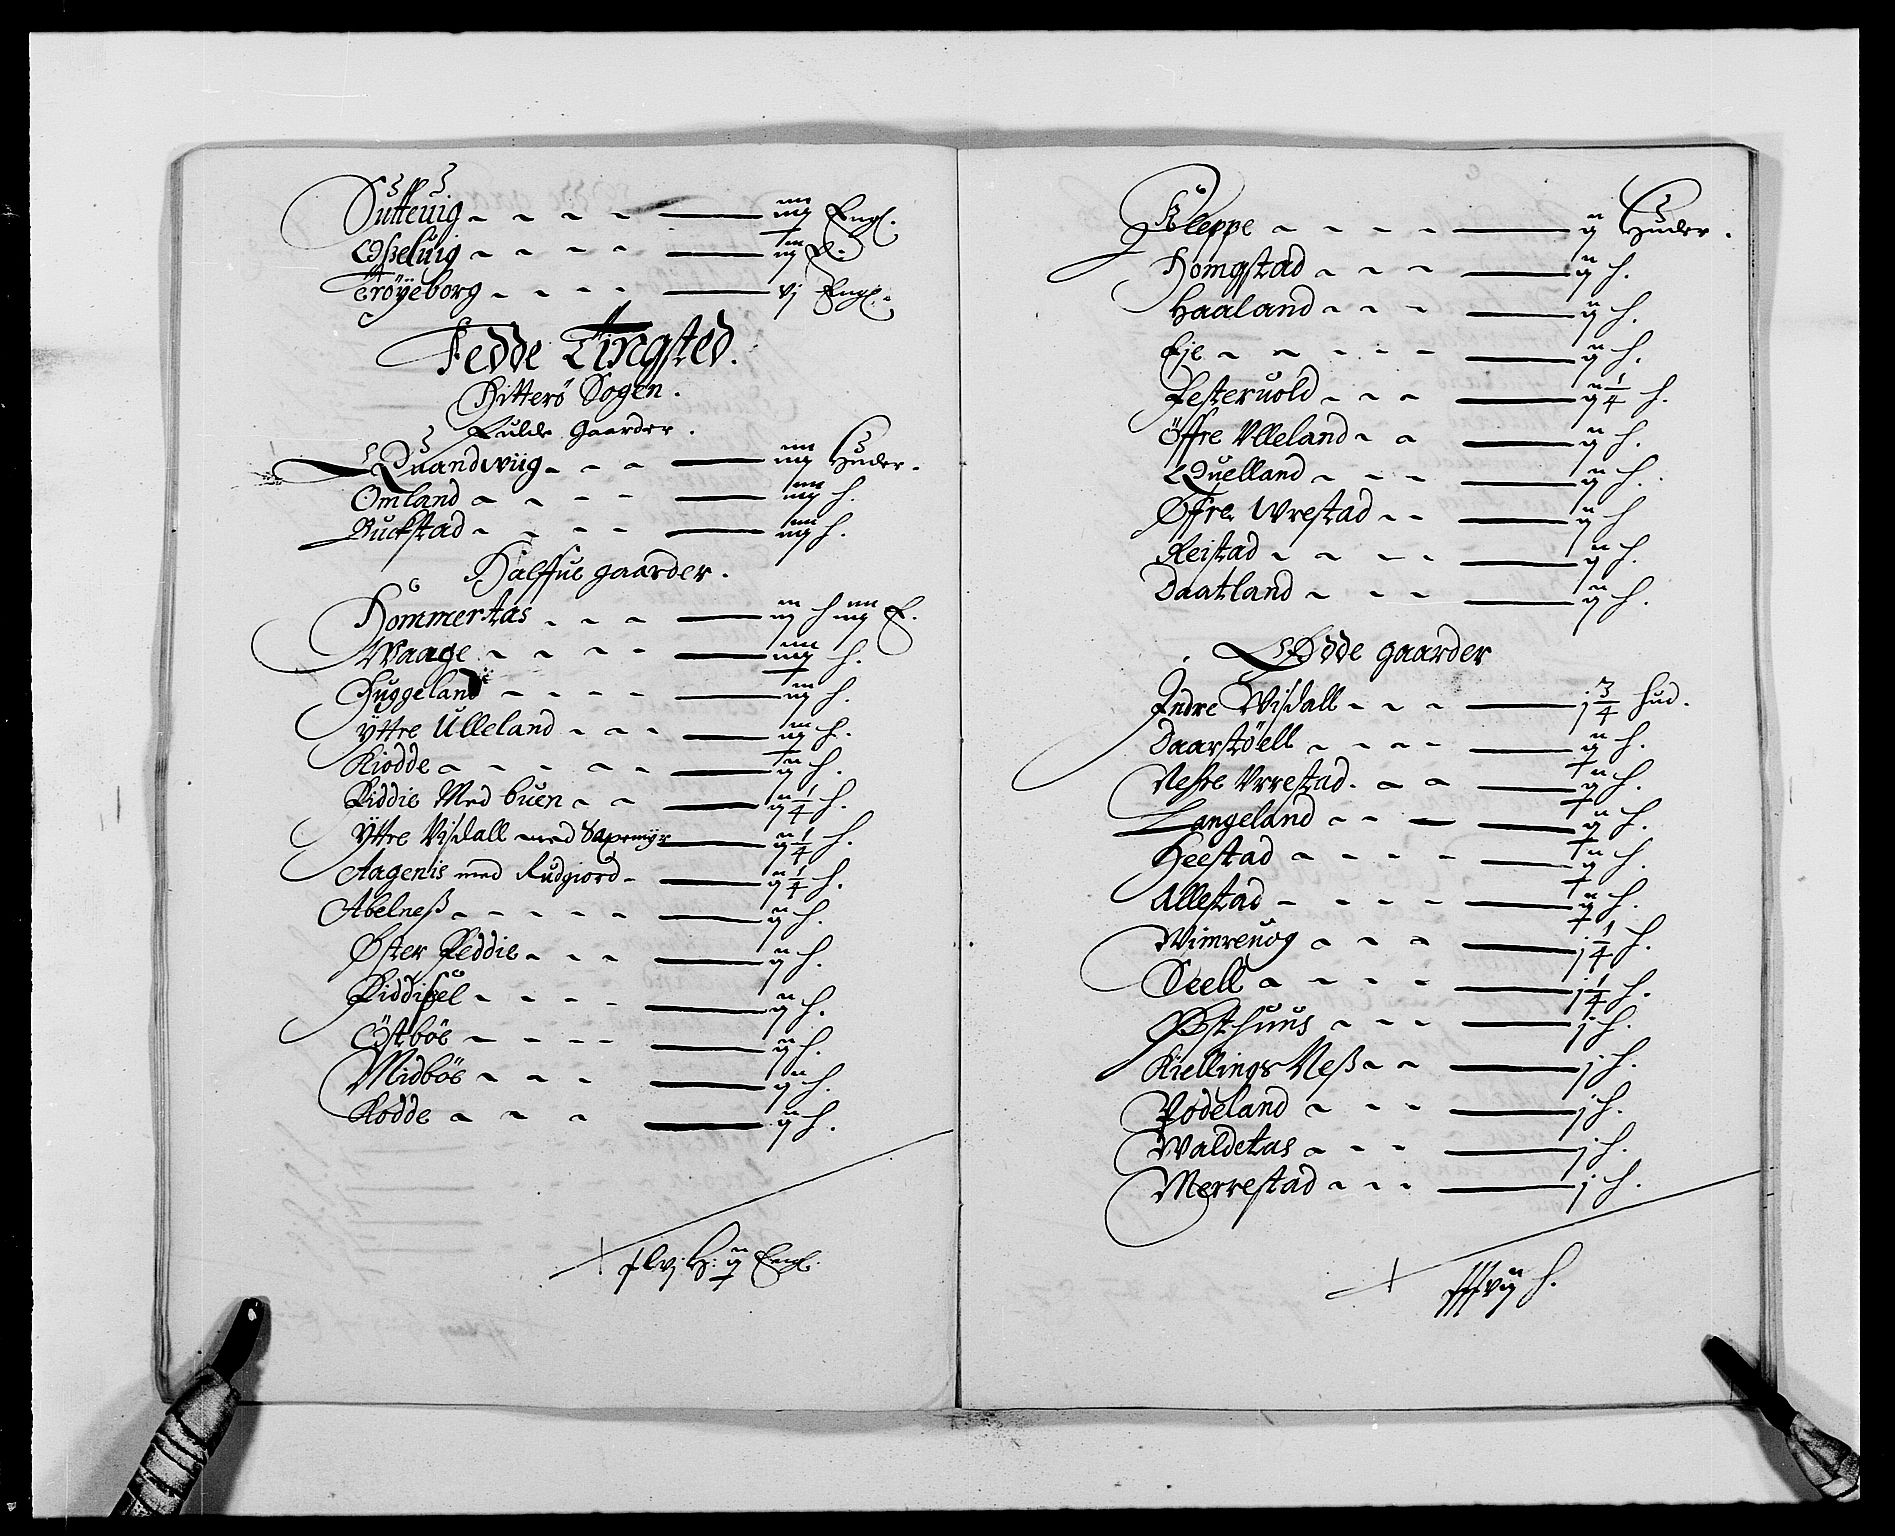 Sutteuig - - - - iiij Engl.
Osseluig - - - - iij E.
Trøyeborg - - - - vj Engl.
Fedde Tingsted.
Hitterø Sogen.
Fulde Gaarder.
Quandwiig - - - iiij Huder.
Omland - - - - iiij h.
Buckstad - - - - iiij h.
Halffue gaarder.
Hommertas - - - iij h iiij E.
Waage - - - - iiij h.
Huggeland - - - - iij h.
Yttre Ulleland - - - iij h.
Kiodde - - - - - ij h.
Fiddie Med buen - - ij 1/4 h.
Yttre Visdall med Saxemyr ij 1/4 h.
Aagenis med Rudgiord - ij 1/4 h.
Abelneß - - - - - ij h.
Øster Feddie - - - ij h.
Fiddissel - - - - ij h.
Östbøe - - - - ij h.
Midbøe - - - ij h.
Rodde - - - ij h.
Engl.
Kleppe - - - - ij Huder.
Homgstad - - - ij h.
Haaland - - - ij h.
Eje - - - - - ij h.
Festeruold - - - ij 1/4 h.
Öffre Ulleland - - ij h.
Quelland - - - ij h.
Øffre Wrestad - - ij h
Reistad - - - - ij h.
Daatland - - - ij h.
Ødde gaarder
Indre Visdall - - - j 3/4 hud.
Daarstøell - - - - ij h.
Neffre Vrrestad - - ij h.
Langeland - - - ij h.
Heestad - - - - ij h.
Allestad - - - - ij h.
Wimreuog - - - j 1/4 h.
Seell - - - - j 1/4 h.
Østhuus - - - j h.
Kiellings Neß - - j h.
Podeland - - - j h.
Waldetas - - - j h.
Merrestad - - - j h.
h.